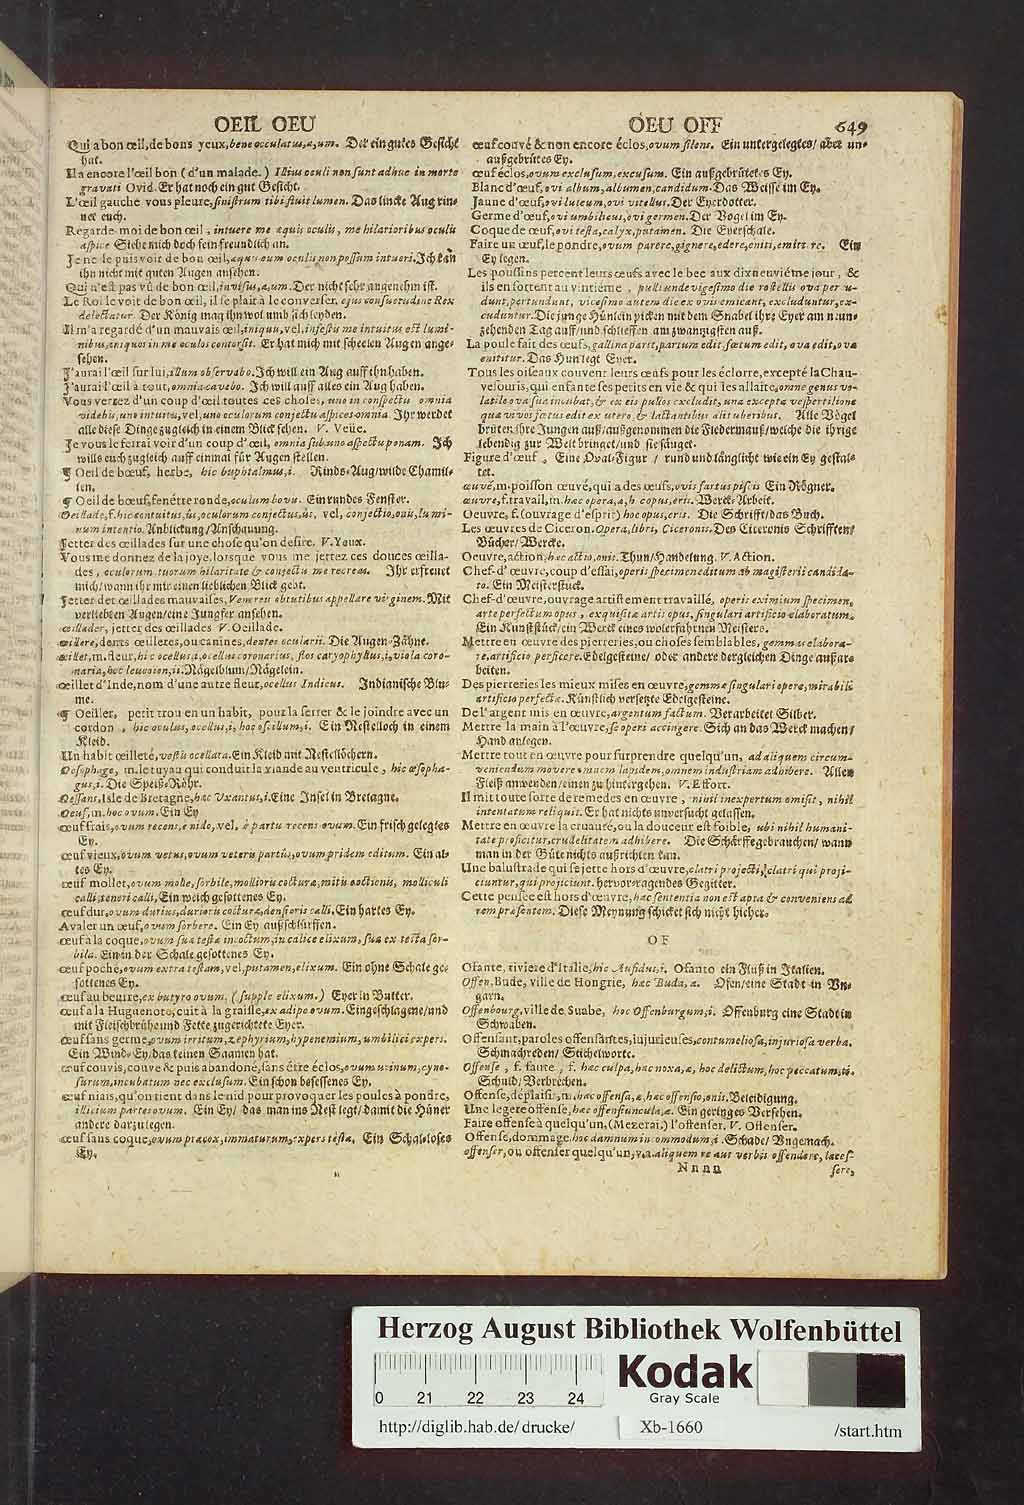 OEIL OEU
Qui a bon œil, de bons yeux, bene occulatus, a, um. Der ein gutes Gesicht
hat.
Il a encore l'œil bon (d'un malade.) Illius oculi non sunt adhuc in morte
gravati Ovid. Er hat noch ein gut Gesicht.
L'œil gauche vous pleure, sinistrum tibi fluit lumen. Das lincke Aug rin-
net euch.
Regardé-moi de bon œil, intuere me æquis oculis, me hilarioribus oculis
aspice Siehe mich doch fein freundlich an.
Je ne le puis voir de bon œil, æquis eum oculis non possum intueri. Ich kan
ihn nicht mit guten Augen ansehen.
Qui n'est pas vû de bon œil, invisus, a, um. Der nicht sehr angenehm ist.
Le Roi le voit de bon œil, il se plait à le converser, ejus consuetudine Rex
delectatur. Der König mag ihn wol umb sich leyden.
Il m'a regardé d'un mauvais œil, iniquis, vel, infestis me intuitus est lumi-
nibus, iniquos in me oculos contorsit. Er hat mich mit scheelen Augen ange-
sehen.
J'aurai l'œil sur lui, illum observabo. Ich will ein Aug auff ihn haben.
J'aurai l'œil à tout, omnia cavebo. Ich will auff alles ein Aug haben.
Vous verrez d'un coup d'œil toutes ces choses, uno in conspectu omnia
videbis, uno intuitu, vel, uno oculorum conjectu aspices omnia. Ihr werdet
alle diese Dinge zugleich in einem Blick sehen. V. Veüe.
Je vous le ferai voir d'un coup d'œil, omnia sub uno aspectu ponam. Ich
wills euch zugleich auff einmal für Augen stellen.
¶ Oeil de bœuf, herbe, hic buphtalmus, i. Rinds-Aug/wilde Chamil-
len.
¶ Oeil de bœuf, fenétre ronde, oculum bovis. Ein rundes Fenster.
Oeillade, f. hic contuitus, ûs, oculorum conjectus, ûs, vel, conjectio, onis, lumi-
num intentio. Anblickung/Anschauung.
Jetter des œillades sur une chose qu'on desire. V. Yeux.
Vous me donnez de la joye, lorsque vous me jettez ces douces œilla-
des, oculorum tuorum hilaritate & conjectu me recreas. Ihr erfreuet
mich/wann ihr mir einen lieblichen Blick gebt.
Jetter des œillades mauvaises, Venereis obtutibus appellare virginem. Mit
verliebten Augen/eine Jungfer ansehen.
œillader, jetter des œillades V. Oeillade.
œillere, dents œilleres, ou canines, dentes ocularii. Die Augen-Zähne.
œillet, m. fleur, hic ocellus, i, ocellus coronarius, flos caryophyllus, i, viola coro-
naria, hoc leucoion, ii. Nägelblum/Nägelein.
œillet d'Inde, nom d'une autre fleur, ocellus Indicus. Indianische Blu-
me.
¶ Oeillet, petit trou en un habit, pour la serrer & le joindre avec un
cordon, hic oculus, ocellus, i, hoc ostolum, i. Ein Nestelloch in einem
Kleid.
Un habit œilleté, vestis ocellata. Ein Kleid mit Nestellöchern.
Oesophage, m. le tuyau qui conduit la viande au ventricule, hic œsopha-
gus, i. Die Speiß-Röhr.
Oessant, Isle de Bretagne, hæc Vxantus, i. Eine Insel in Bretagne.
Oeuf, m. hoc ovum. Ein Ey
œuf frais, ovum recens, è nido, vel, è partu recens ovum. Ein frisch gelegtes
Ey.
œuf vieux, ovum vetus, ovum veteris partûs, ovum pridem editum. Ein al-
tes Ey.
œuf mollet, ovum molle, sorbile, mollioris cocturæ, mitis coctionis, molliculi
calli, teneri calli, Ein weich gesottenes Ey.
œuf dur, ovum durius, durioris cocturæ, densioris calli. Ein hartes Ey.
Avaler un œuf, ovum sorbere. Ein Ey außschlürffen.
œuf à la coque, ovum suâ testâ incoctum, in calice elixum, sua ex testa sor-
bila. Ein in der Schale gesottenes Ey.
œuf poche, ovum extra testam, vel, putamen, elixum. Ein ohne Schale ge-
sottenes Ey.
œuf au beurre, ex butyro ovum. (supple elixum.) Eyer in Butter.
œuf à la Huguenote, cuit à la graisse, ex adipe ovum. Eingeschlagene/und
mit Fleischbrühe und Fette zugerichtete Eyer.
œuf sans germe, ovum irritum, zephyrium, hypenemium, umbilici expers.
Ein Wind-Ey, das keinen Saamen hat.
œuf couvis, couvé & puis abandoné, sans étre éclos, ovum urinum, cyno-
surum, incubatum nec exclusum. Ein schon besessenes Ey.
œuf niais, qu'on tient dans le nid pour provoquer les poules à pondre,
illicium partes ovum. Ein Ey/ das man ins Nest legt/damit die Hüner
andere darzu legen.
œuf sans coque, ovum præcox, immaturum, expers testæ. Ein Schal-loses
Ey.
OEU OFF 649
œuf couvé & non encore éclos, ovum silens. Ein untergelegtes/ aber un-
außgebrütes Ey.
œuf éclos, ovum exclusum, excusum. Ein außgebrütetes Ey.
Blanc d'œuf, ovi album, albumen, candidum. Das Weisse im Ey.
Jaune d'œuf, ovi luteum, ovi vitellus. Der Eyerdotter.
Germe d'œuf, ovi umbilicus, ovi germen. Der Vogel im Ey.
Coque de œuf, ovi testa, calyx, putamen. Die Eyerschale.
Faire un œuf, le pondre, ovum parere, gignere, edere, eniti, emittere. Ein
Ey legen.
Les poussins percent leurs œufs avec le bec aux dixneuviéme jour, &
ils en sortent au vintiéme, pulli undevigesimo die rostellis ova per u-
dunt, pertundunt, vicesimo autem die ex ovis emicant, excluduntur, ex-
cuduntur. Die junge Hünlein picken mit dem Snabel ihre Eyer am neun-
zehenden Tag auff/und schlieffen am zwanzigsten auß.
La poule fait des œufs, gallina parit, partum edit, fœtum edit, ova edit, ova
enititur. Das Hun legt Eyer.
Tous les oiseaux couvent leurs œufs pour les éclorre, excepté la Chau-
vesouris, qui enfante ses petits en vie & qui les allaite, omne genus vo-
latile ova sua incubat, & ex eis pullos excludit, una excepta vespertilione
quæ vivos fœtus edit ex utero, & lactantibus alit uberibus. Alle Vögel
brüten ihre Jungen auß/außgenommen die Fledermauß/welche die ihrige
lebendig zur Welt bringet/und sie säuget.
Figure d'œuf, Eine Oval-Figur/ rund und länglicht wie ein Ey gestal-
tet.
œuvé, m. poisson œuvé, qui a des œufs, ovis fartus piscis Ein Rögner.
œuvre, f. travail, m. hæc opera, æ, h. copus, eris. Werck-Arbeit.
Oeuvre, f. (ouvrage d'esprit) hoc opus, eris. Die Schrifft/das Buch.
Les œuvres de Ciceron. Opera, libri, Ciceronis. Des Ciceronis Schrifften/
Bücher/Wercke.
Oeuvre, action, hæc actio, onis. Thun/Handelung. V. Action.
Chef-d'œuvre, coup d'essai, operis specimen editum ab magisterii candida-
to. Ein Meisterstück.
Chef-d'œuvre, ouvrage artistement travaillé, operis eximium specimen,
arte perfectum opus, exquisitæ artis opus, singulari artificio elaboratum.
Ein Kunststück/ein Werck eines wolerfahrnen Meisters.
Mettre en œuvre des pierreries, ou choses semblables, gemmas elabora-
re, artificio perficere. Edelgesteine/ oder andere dergleichen Dinge außar-
beiten.
Des pierreries les mieux mises en œuvre, gemmæ singulari opere, mirabili
artificio perfectæ. Künstlich versetzte Edelgesteine.
De l'argent mis en œuvre, argentum factum. Verarbeitet Silber.
Mettre la main à l'œuvre, se operi accingere. Sich an das Werck machen/
Hand anlegen.
Mettre tout en œuvre pour surprendre quelqu'un, ad aliquem circum-
veniendum movere omnem lapidem, omnem industriam adhibere. Allen
Fleiß anwenden/einen zu hintergehen. V. Effort.
Il mit toute sorte de remedes en œuvre, nihil inexpertum omisit, nihil
intentatum reliquit. Er hat nichts unversucht gelassen.
Mettre en œuvre la cruauté, ou la douceur est foible, ubi nihil humani-
tate proficitur, crudelitatem adhibere. Die Schärffe gebrauchen/ wann
man in der Güte nichts außrichten kan.
Une balustrade qui se jette hors d'œuvre, clatri projecti, clatri qui proji-
ciuntur, qui projiciunt. hervorragendes Gegitter.
Cette pensée est hors d'œuvre, hæc sententia non est apta & conveniens ad
rem præsentem. Diese Meynung schicket sich nicht hieher.
OF
Ofante, riviere d'Italie, hic Aufidus, i. Ofanto ein Fluß in Italien.
Offen, Bude, ville de Hongrie, hæc Buda, æ. Ofen/eine Stadt in Un-
garn.
Offenbourg, ville de Suabe, hoc Offenburgum, i. Offenburg eine Stadt in
Schwaben.
Offensant, paroles offensantes, injurieuses, contumeliosa, injuriosa verba.
Schmachreden/ Stichelworte.
Offense, f. faute, f. hæc culpa, hæc noxa, æ, hoc delictum, hoc peccatum, ti.
Schuld/Verbrechen.
Offense, déplaisir, m. hæc offensa, æ, hæc offensio, onis. Beleidigung.
Une legere offense, hæc offensiuncula, æ. Ein geringes Versehen.
Faire offense à quelqu'un, (Mezerai.) l'offenser. V. Offenser.
Offense, dommage, hoc damnum incommodum, i. Schade/ Ungemach.
offenser, ou offenser quelqu'un, v. a. aliquem re aut verbis offendere, laces-
Nnnn sere,
Herzog August Bibliothek Wolfenbüttel
0 21 22 23 24
Kodak
Gray Scale
http://diglib.hab.de/drucke/ Xb-1660 /start.htm